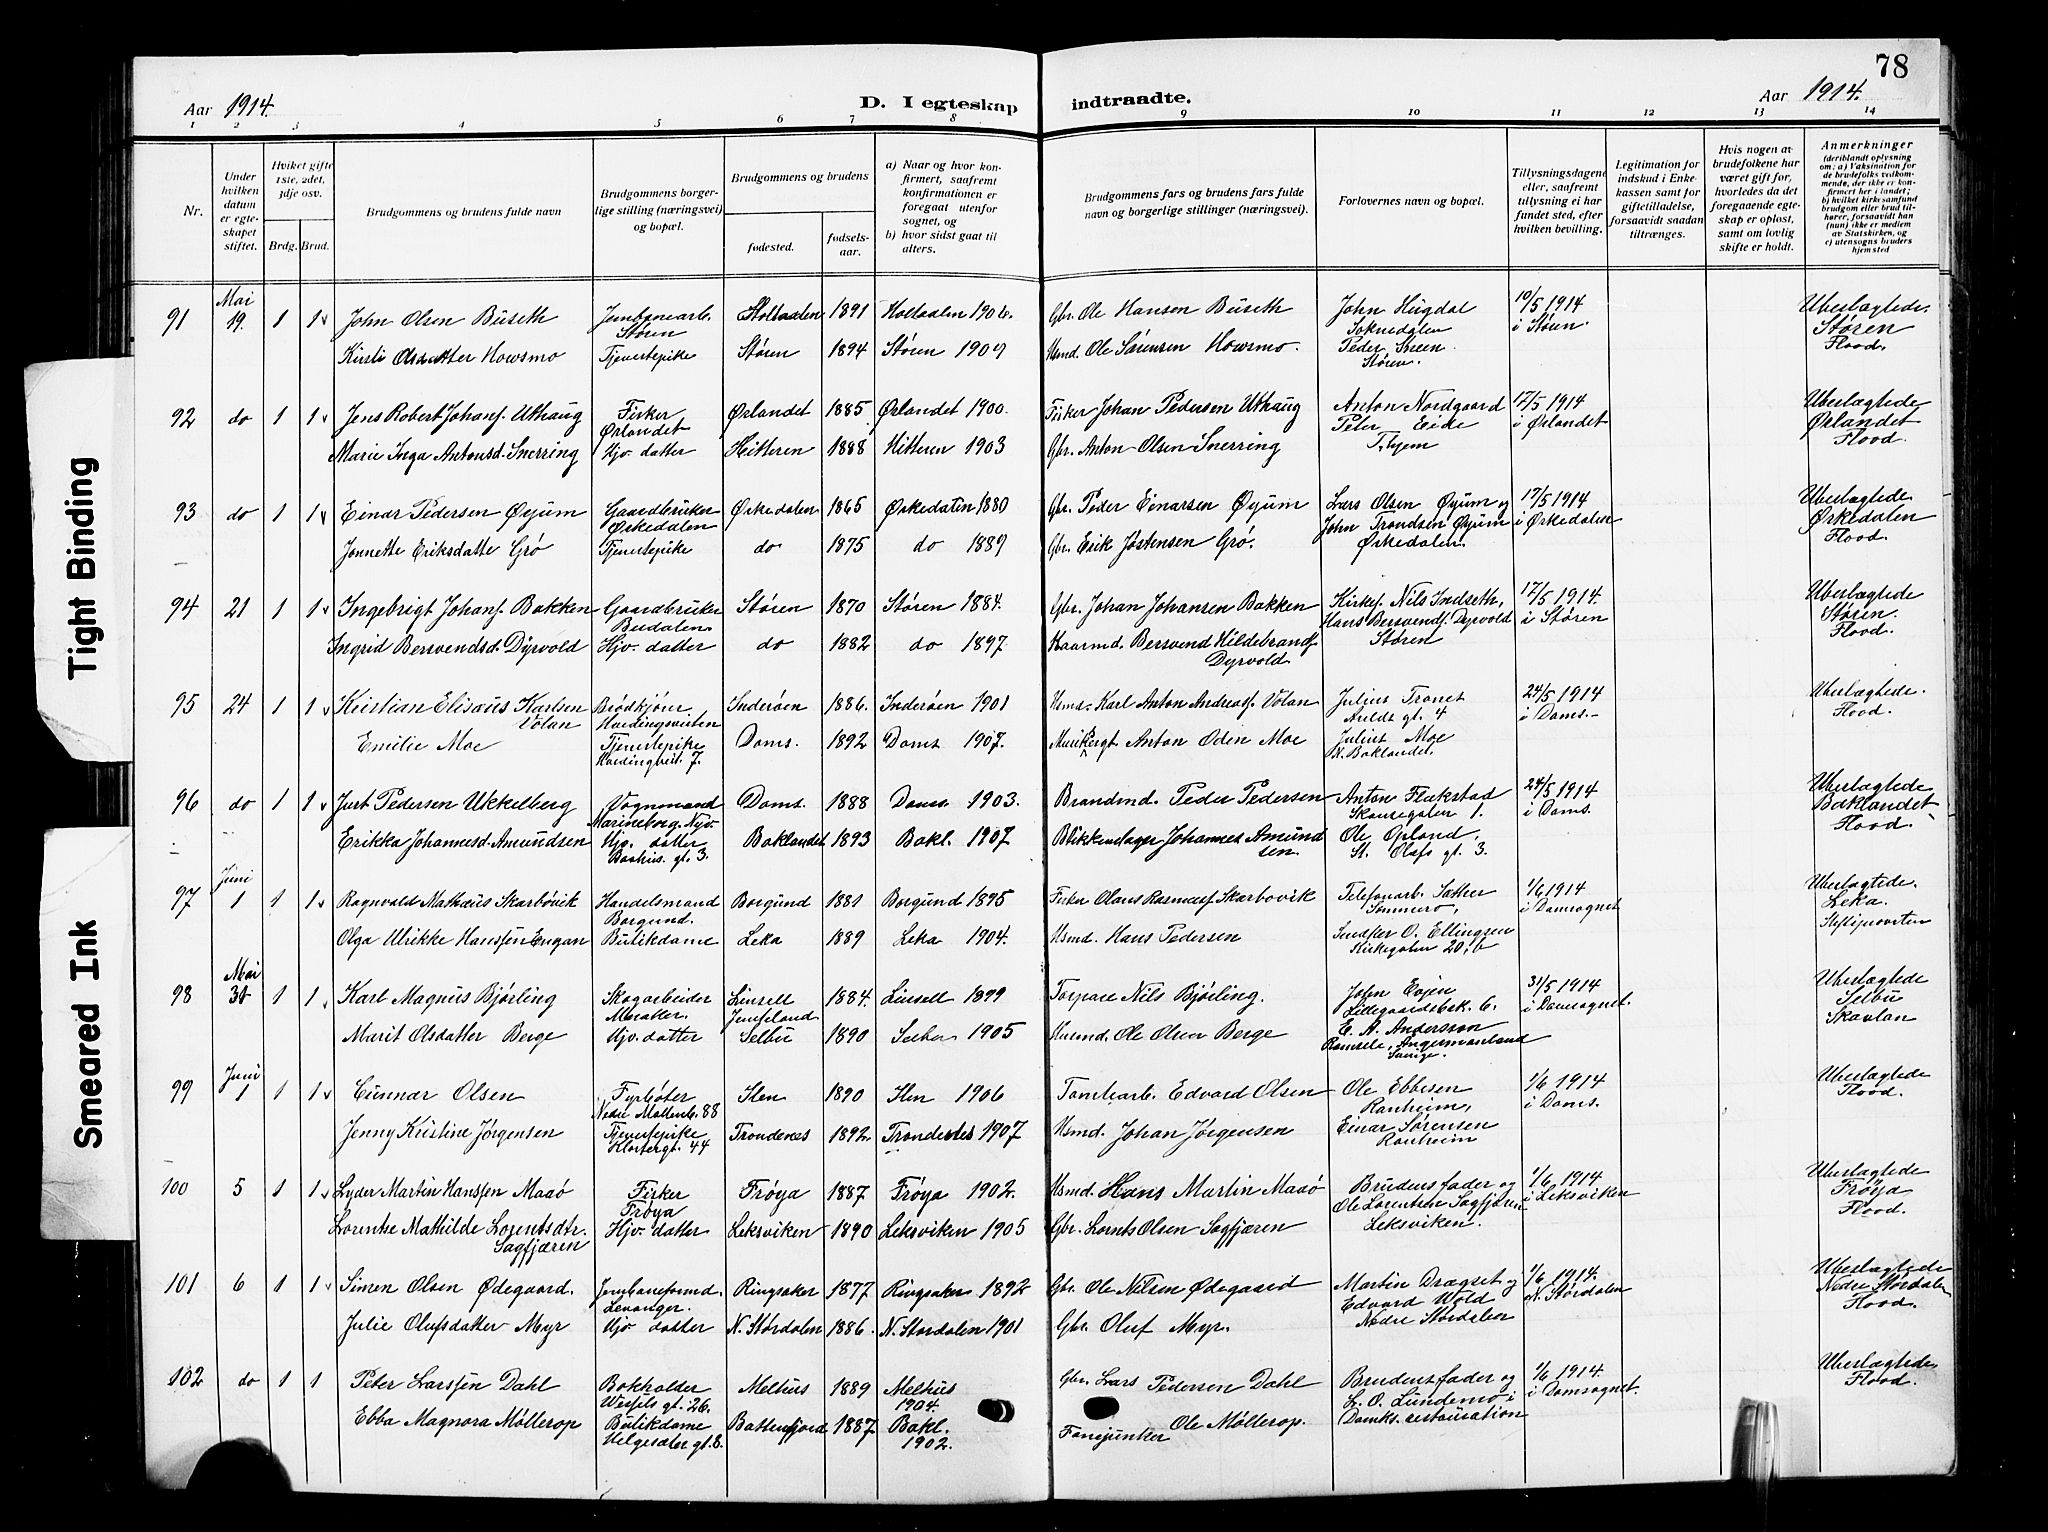 78
Aar 1914.
D. I egteskap indtraadte.
Aar 1914.
1 2 3 4 5 6 7 8 9 10 11 12 13 14
Nr.
Under hvilken datum er egteskapet stiftet.
Hvilket gifte 1ste, 2det, 3dje osv.
Brdg. Brud.
Brudgommens og brudens fulde navn
Brudgommens borgerlige stilling (næringsvei) og bopæl.
Brudgommens og brudens
fødested.
fødselsaar.
a) Naar og hvor konfirmert, saafremt konfirmationen er foregaat utenfor sognet, og
b) hvor sidst gaat til alters.
Brudgommens fars og brudens fars fulde navn og borgerlige stillinger (næringsvei).
Forlovernes navn og bopæl.
Tillysningsdagene eller, saafremt tillysning ei har fundet sted, efter hvilken bevilling.
Legitimation for indskud i Enkekassen samt for giftetilladelse, forsaavidt saadan tiltrænges.
Hvis nogen av brudefolkene har været gift før, hvorledes da det foregaaende egteskap er opløst, samt om lovlig skifte er holdt.
Anmerkninger
(deriblandt oplysning om: a) Vaksination for de brudefolks vedkommende, der ikke er konfirmert her i landet; b) hvilket kirkesamfund brudgom eller brud tilhører, forsaavidt han (hun) ikke er medlem av Statskirken, og c) utensogns bruders hjemsted
91 Mai 19. 1 1 John Olsen Buseth Jernbanearb. Støren Holtaalen 1891 Holtaalen 1906. Gbr. Ole Hansen Buseth John Hugdal Soknedalen 10/5 1914 i Støren. Uberlagtede. Støren Flood.
Kirsti Olsdatter Howsmo Tjenestepike Støren 1894 Støren 1909 Husmd. Ole Sørensen Howsmo. Peder Støren.
92 do 1 1 Jens Robert Johans. Uthaug Fisker Ørlandet Ørlandet 1885 Ørlandet 1900. Fisker Johan Pedersen Uthaug Anton Nordgaard Peter Eide T.hjem 17/5 1914 i Ørlandet Uberlagtede Ørlandet Flood.
Marie Inga Antonsd. Snerring Hjv. datter Hitteren 1888 Hitteren 1903 Gbr. Anton Olsen Snerring
93 do 1 1 Einar Pedersen Øyum Gaardbruker Ørkedalen Ørkedalen 1865 Ørkedalen 1880 Gbr. Peder Einarsen Øyum Lars Olsen Øyum og John Trondsen Øyum Ørkedalen. 17/5 1914 i Ørkedalen Uberlagtede Ørkedalen Flood.
Jonnette Eriksdatte Grø Tjenestepike do 1875 do 1889 Gbr. Erik Jostensen Grø.
94 21 1 1 Ingebrigt Johans. Bakken Gaardbruker Budalen Støren 1870 Støren 1884. Gbr. Johan Johansen Bakken Kirkes. Nils Indseth, Hans Bersvends. Dyrvold Støren 17/5 1914. i Støren Uberlagtede Støren. Flood.
Ingrid Bersvendsd. Dyrvold Hjv. datter do 1882 do 1897. Kaarmd. Bersvend Hildebrands. Dyrvold
95 24 1 1 Kristian Elisæus Karlsen Volan Brødkjører Inderøen 1886. Inderøen 1901 Husmd. Karl Anton Andreas. Volan Julius Tronet gt. 4 24/5 1914 i Doms. Uberlagtede. Flood.
Emilie Moe Tjenestepike Doms. 1892 Doms 1907. Anton Oden Moe Julius Moe N. Baklandet.
96 do 1 1 Just Pedersen Ukkelberg Vognmand Doms. 1888 Doms 1903. Brandmd. Peder Pedersen Anton Flakstad Skansegaten 1. 24/5 1914 i Doms. Uberlagtede Baklandet Flood.
Erikka Johannesd. Amundsen Hjv. datter gt. 3. Baklandet 1893 Bakl. 1907 Blikkenslager Johannes Amundsen. Ole Ørland, St. Olafs gt. 3.
97 Juni 1 1 1 Ragnvald Mathæus Skarbøvik Handelsmand Borgund. Borgund 1881 Borgund 1895 Fisker Olaus Rasmus. Skarbøvik Telefonarb. Sæther 1/6 1914 i Domsognet Uberlagtede. Leka. Stiftsprovsten
Olga Ulrikke Hanssen Engan Butikdame Leka 1889 Leka 1904. Husmd. Hans Pedersen O. Ellingsen Kirkegaten 20, b
98 Mai 31 1 1 Karl Magnus Bjørling Skogarbeider Meraker. Linsell Jemtland 1884. Linsell 1899 Torpare Nils Bjørling. John Evjen Lillegaardsbak. 6. 31/5 1914 i Domsognet. Uberlagtede Selbu Skavlan
Marit Olsdatter Berge Hjv. datter Selbu 1890 Selbu 1905 Husmd. Ole Olsen Berge E. A. Andersson Ramsele, Angermanland Sverige.
99 Juni 1 1 1 Gunnar Olsen Fyrbøter Nedre Møllenb. 88 Ilen 1890 Ilen 1906 Tomtearb. Edvard Olsen Ole Ebbesen Ranheim, 1/6 1914 i Doms. Uberlagtede Flood.
Jenny Kristine Jørgensen Tjenestepike Klostergt. 44 Trondenes 1892. Trondenes 1907 Husmd. Johan Jørgensen Einar Sørensen Ranheim
100 5 1 1 Lyder Martin Hanssen Maaø Fisker Frøya Frøya 1887 Frøya 1902. Husmd. Hans Martin Maaø Brudens fader og Ole Lorentsen Sagfjæren Leksviken. 1/6 1914 i Leksviken Uberlagtede Frøya Flood.
Lorentse Mathilde Lorentsdtr. Sagfjæren Hjv. datter Leksviken 1890 Leksviken 1905 Gbr. Lornts Olsen Sagfjæren
101 6 1 1 Simen Olsen Ødegaard. Jernbaneformd. Levanger. Ringsaker 1877 Ringsaker 1892 Gbr. Ole Nilsen Ødegaard Martin Drægset og Edvard Wold Nedre Størdalen 1/6 1914. N. Størdalen Uberlagtede Nedre Størdalen Flood.
Julie Olufsdatter Myr Hjv datter N. Størdalen 1886. N. Størdalen 1901 Gbr. Oluf Myr.
102 do 1 1 Peter Larssen Dahl Bokholder Wessels gt. 26. Melhus 1889 Melhus 1904. Gbr. Lars Pedersen Dahl Brudens fader og L. O. Lundemo i Domks. restauration 1/6 1914. i Domsognet. Uberlagtede Flood.
Ebba Magnora Møllerop Butikdame Helgesæter gt. 8. Battenfjord 1887 Bakl. 1902. Fanejunker Ole Møllerop.
Tight Binding
Smeared Ink